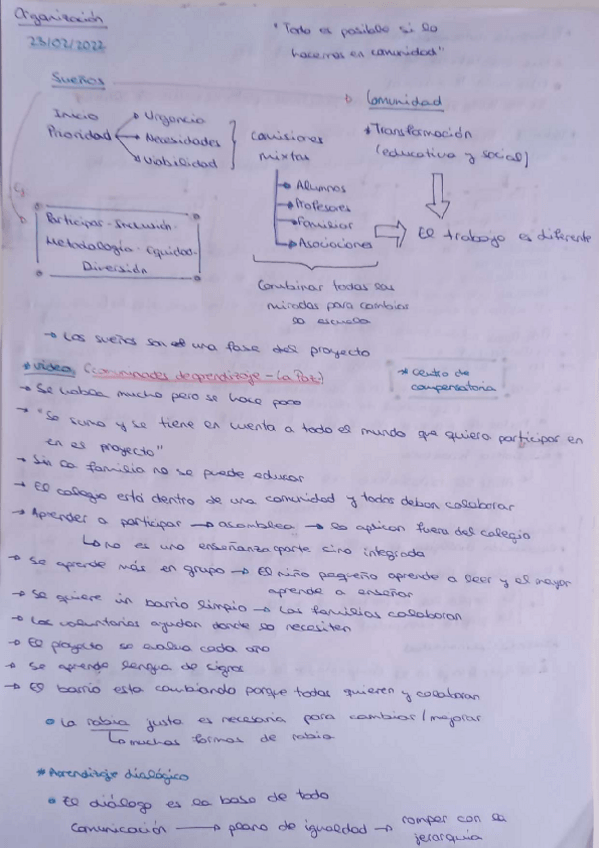 Organización
23/02/2022
"Todo es posible si lo
hacemos en comunidad"
Sueños
Comunidad
Inicio
Prioridad
Urgencia
Necesidades
Viabilidad
comisiones
mixtas
→ Alumnos
→ Profesores
→ Familias
→ Asociaciones
*Transformación
(educativa y social)
El trabajo es diferente
Participar - Inclusión -
Metodología - Equidad -
Diversión
Combinar todas las
miradas para cambiar
la escuela
→ Los sueños son una fase del proyecto
*Video (Comunidades de aprendizaje - La Paz)
* Centro de
compensatoria
→ Se habla mucho pero se hace poco
→ "Se suma y se tiene en cuenta a todo el mundo que quiera participar en
en el proyecto"
→ Sin la familia no se puede educar
→ El colegio está dentro de una comunidad y todos deben colaborar
→ Aprender a participar → asamblea → lo aplican fuera del colegio
↳ no es una enseñanza aparte sino integrada
→ Se aprende más en grupo → El niño pequeño aprende a leer y el mayor
aprende a enseñar
→ Se quiere un barrio limpio → Las familias colaboran
→ Los voluntarios ayudan donde lo necesiten
→ El proyecto se evalua cada año
→ Se aprende lengua de signos
→ El barrio esta cambiando porque todos quieren y colaboran
• La rabia justa es necesaria para cambiar/mejorar
↳ muchas formas de rabia
*Aprendizaje dialógico
• El diálogo es la base de todo
Comunicación → plano de igualdad → romper con la
jerarquía